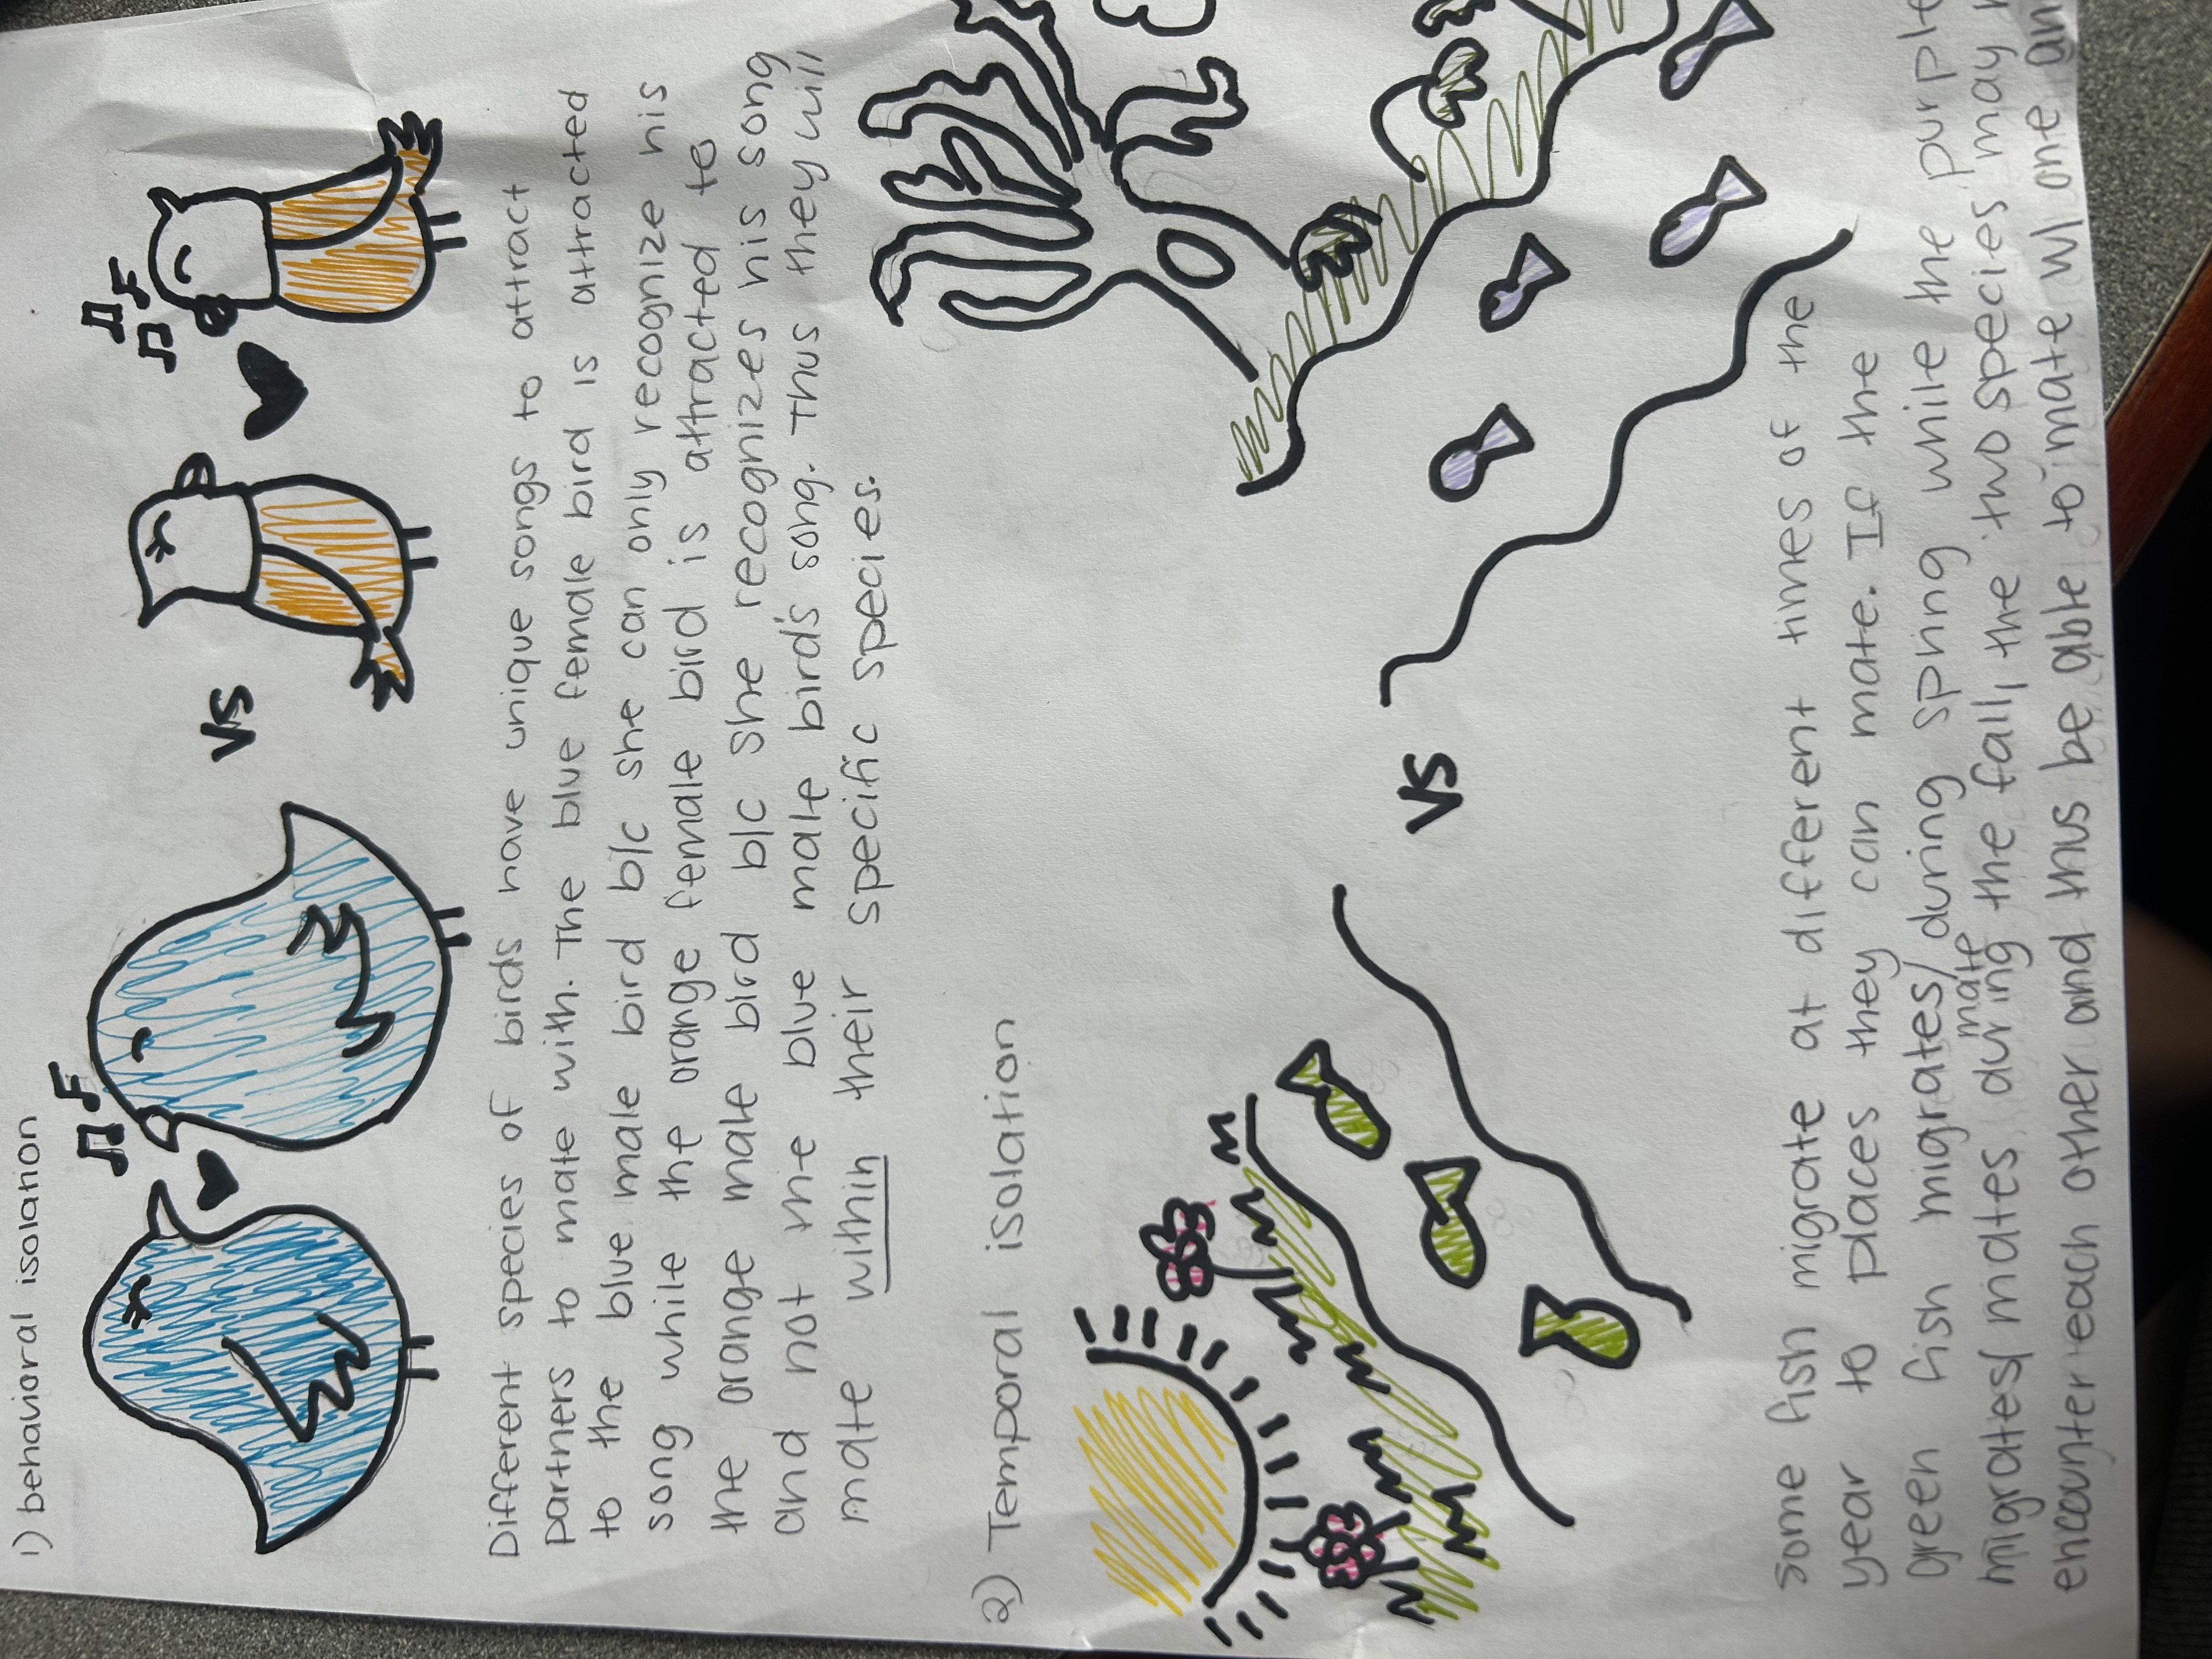 1) behavioral isolation
vs
Different species of birds have unique songs to attract
partners to mate with. The blue female bird is attracted
to the blue male bird b/c she can only recognize his
song while the orange female bird is attracted to
the orange male bird b/c she recognizes his song
and not the blue male bird's song. Thus they will
mate within their specific species.
2) Temporal isolation
vs
some fish migrate at different times of the
year to places they can mate. If the
green fish migrates/ mate during spring while the purple
migrates/ mates during the fall, the two species may
encounter each other and thus be able to mate w/ one